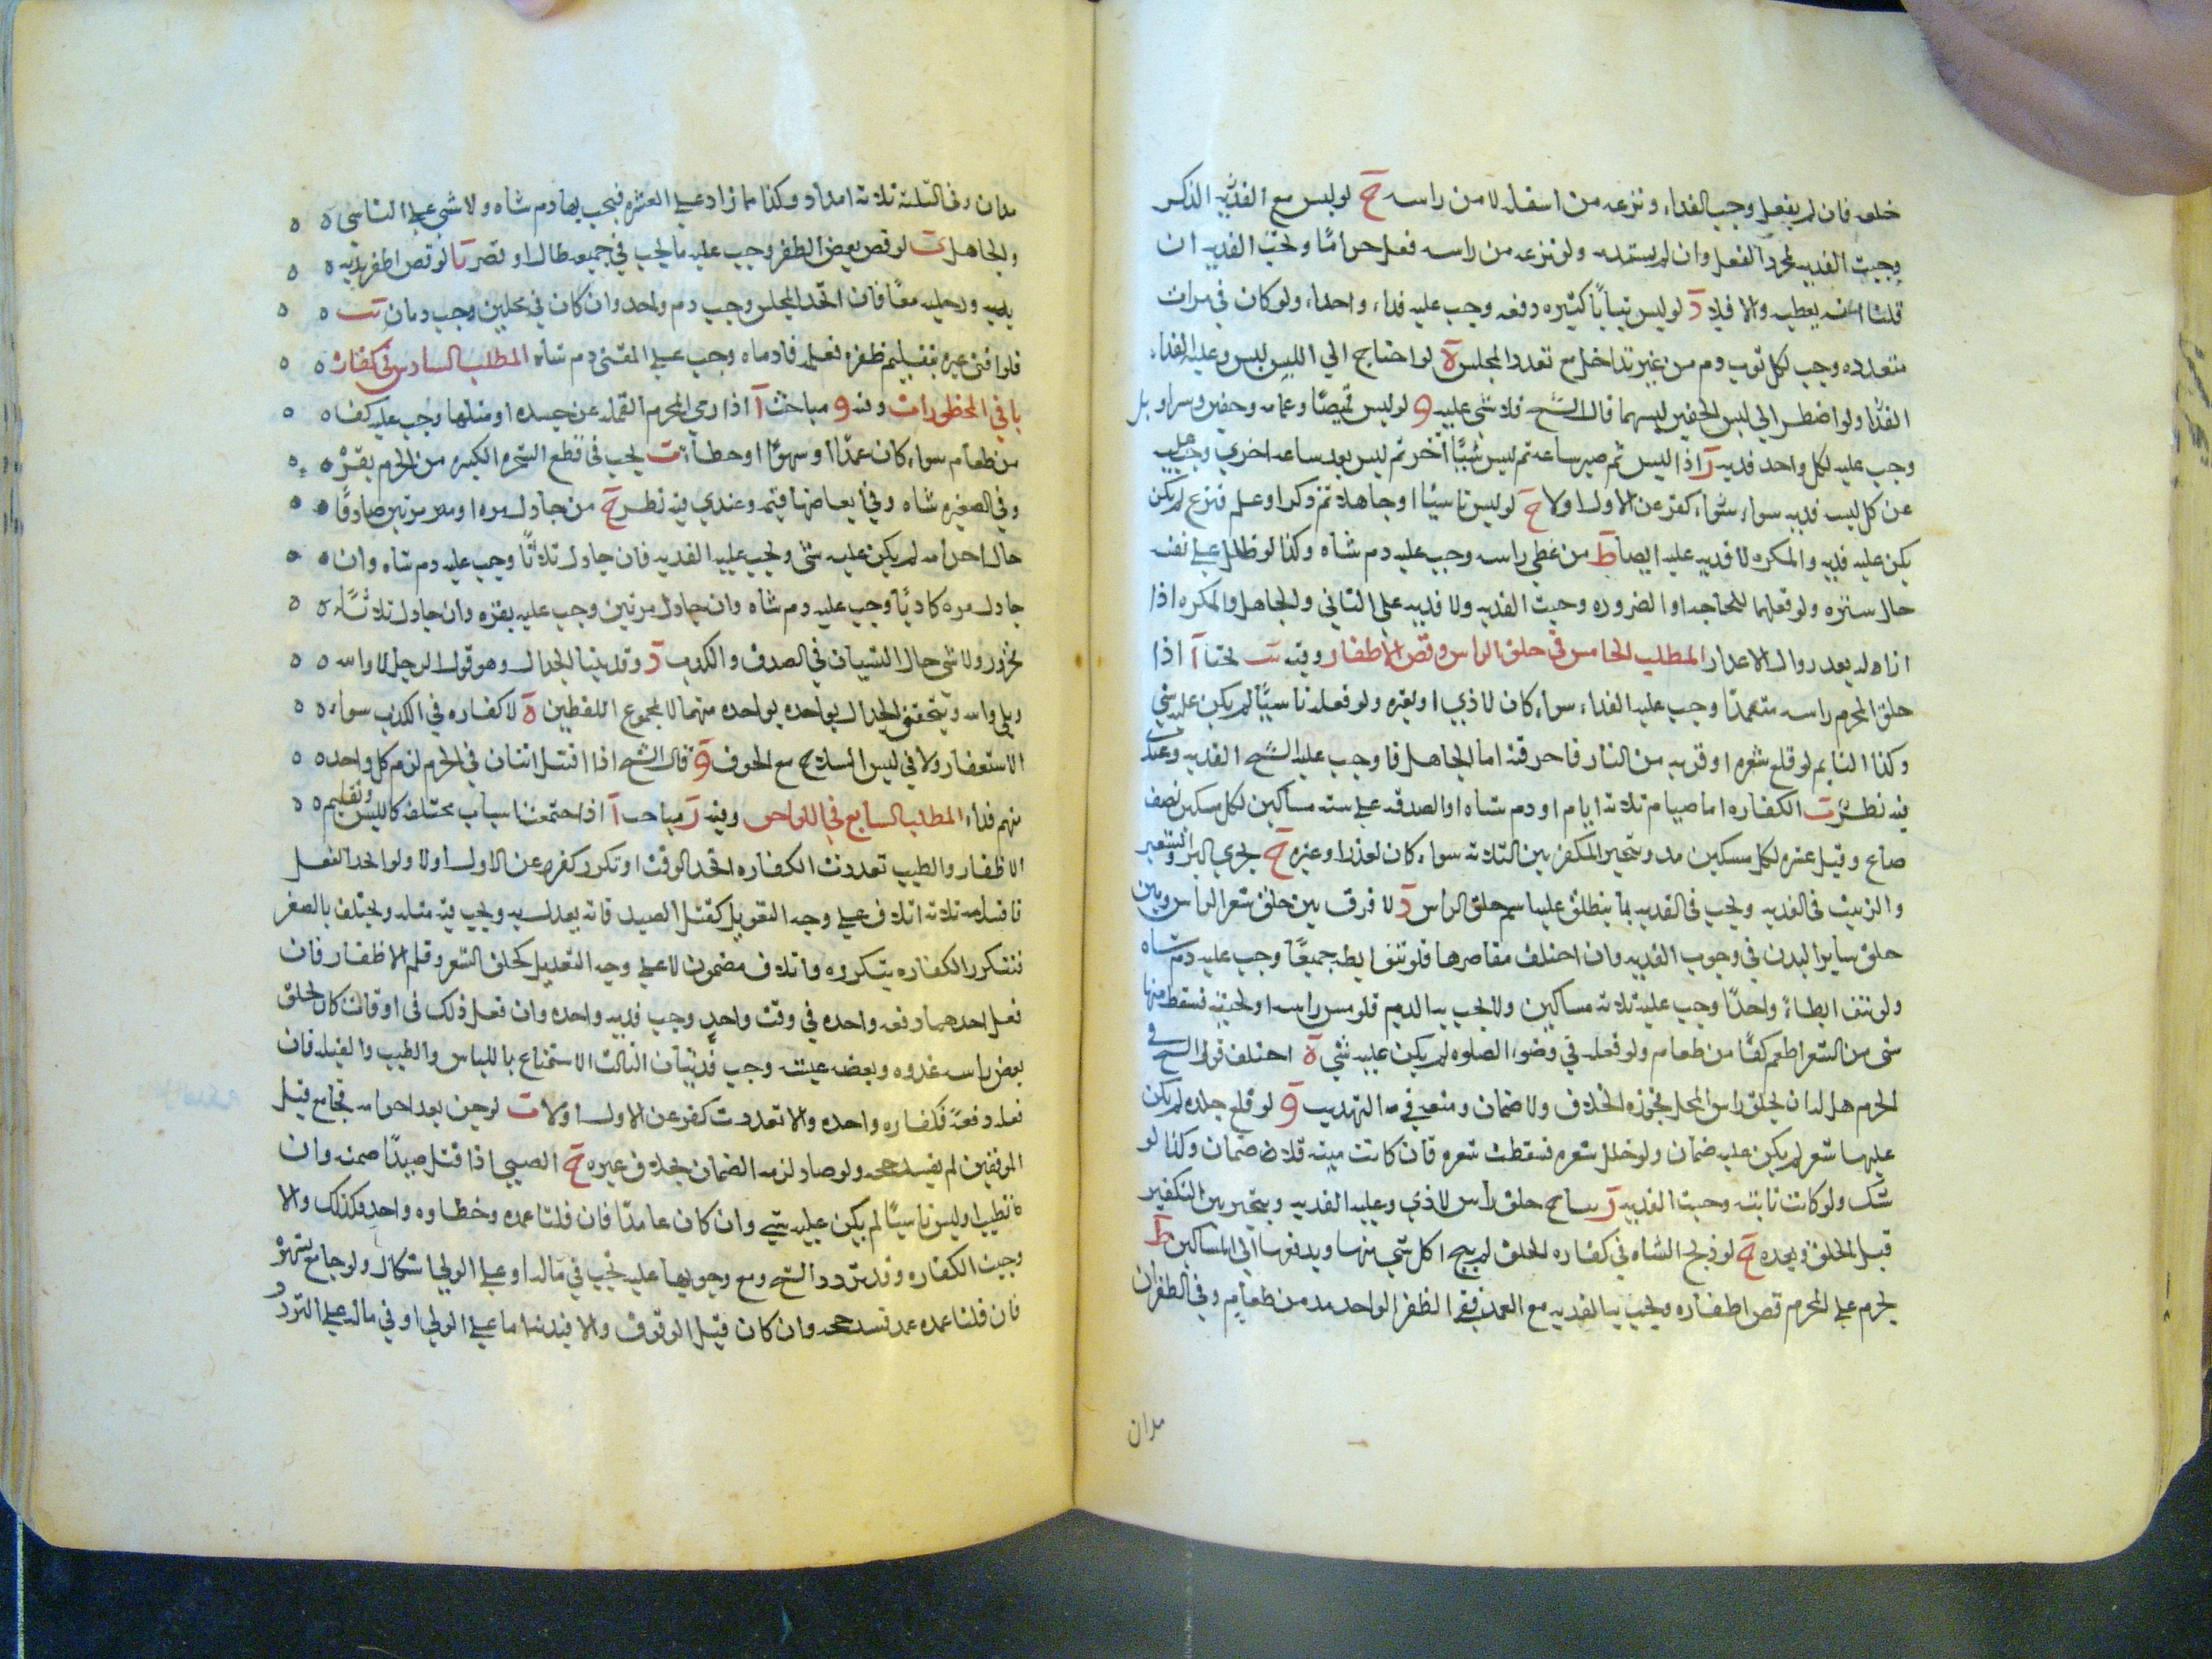 خلعه فان لم يفعل وجب الفداء ونزعه من اسفل لا من راسه ح لو لبس مع الفدية الذكر
وجبت الفديه بمجرد الفعل وان لم يستمد ولو نزعه من راسه فعل حراما وتحت الفديه ان
قلنا انه يغطيه والا فلا د لو لبس ثيابا كثيره دفعه وجب عليه فداء واحد ولو كان في مرات
متعدده وجب لكل ثوب دم من غير تداخل مع تعدد المجلس ه لو احتاج الي اللبس لبس وعليه الفداء
الفدا ولو اضطر الي لبس الخفين لبسهما قال الشيخ فلا شي عليه و لو لبس قميصا وعمامه وخفين وسراويل
وجب عليه لكل واحد فديه ز اذا لبس ثم صبر ساعه ثم لبس شيئا آخر ثم لبس بعد ساعه اخري وجب عليه
عن كل لبسه فديه سواء كفر عن الاول او لا ح لو لبس ناسيا او جاهلا ثم ذكر او علم فنزع لم يكن
يكن عليه فديه والمكره لا فديه عليه ايضا ط من غطي راسه وجب عليه دم شاه وكذا لو ظلل علي نفسه
حال سيره ولو فعلهما للحاجه او الضروره وجبت الفديه ولا فديه علي الناسي والجاهل والمكره اذا
ازاله بعد زوال الاعذار المطلب الخامس في حلق الراس وقص الاظفار وفيه يب بحثا آ اذا
حلق المحرم راسه متعمدا وجب عليه الفداء سواء كان لاذي او لغيره ولو فعله ناسيا لم يكن عليه شي
وكذا النايم لو قلع شعره او قربه من النار فاحرقته اما الجاهل فاوجب عليه الشيخ الفديه وعندي
فيه نظر ب الكفاره اما صيام ثلاثه ايام او دم شاه او الصدقه علي سته مساكين لكل مسكين نصف
صاع وقيل عشره لكل مسكين مد ويتخير المكفر بين الثلاثه سواء كان لعذر او غيره ح يجزي البر والشعير
والزبيب في الفديه ويجب في الفديه بما ينطلق عليه اسم حلق الراس د لا فرق بين حلق شعر الراس وبين
حلق ساير البدن في وجوب الفديه وان اختلف مقاصرها فلو نتف ابطيه جميعا وجب عليه دم شاه
ولو نتف ابطا واحدا وجب عليه ثلاثه مساكين ولا يجب به الدم فلو مس راسه او لحيته فسقط منها
شي من الشعر اطعم كفا من طعام ولو فعله في وضوء الصلوه لم يكن عليه شي ه اختلف قول الشيخ في
المحرم هل له ان يحلق راس المحل فجوزه الخلاف ولا ضمان ومنعه في التهذيب و لو قلع جلده لم يكن
عليها شعر لم يكن عليه ضمان ولو خلل شعره فسقطت شعره فان كانت ميته فلا ضمان وكذا لو
شك ولو كانت نابته وجبت الفديه ز يباح حلق راس لاذي وعليه الفديه ويتخير بين التكفير
قبل الحلق وبعده ح لو ذبح الشاه في كفاره الحلق لم يبح اكل شي منها ويدفعها الي المساكين ط
يحرم علي المحرم قص اظفاره ويجب به الفديه مع العمد ففي الظفر الواحد مد من طعام وفي الظفران
مدان
مدان وفي الثلثه ثلاثه امداد وكذا ما زاد علي العشره فيجب بها دم شاه ولا شي علي الناسي ه ه
والجاهل ي لو قص بعض الظفر وجب عليه ما يجب في جميعه طال او قصر يا لو قص اظفر يديه ه ه
يديه ورجليه معا فان اتحد المجلس وجب دم واحد وان كان في مجلسين وجب دمان يب ه ه
فلو افتي غيره بتقليم ظفره ففعل فادماه وجب علي المفتي دم شاه المطلب السادس في كفاره ه ه
باقي المحظورات وفيه و مباحث آ اذا رمي المحرم القمله عن جسده او قتلها وجب عليه كف ه ه
من طعام سواء كان عمدا او سهوا او خطا ب يجب في قطع الشجره الكبيره من الحرم بقره ه ه
وفي الصغيره شاه وفي ابعاضها قيمه وعندي فيه نظر ح من جادل مره او مرتين صادقا ه ه
حال احرامه لم يكن عليه شي ولا يجب عليه الفديه فان جادل ثلاثا وجب عليه دم شاه وان ه ه
جادل مره كاذبا وجب عليه دم شاه وان جادل مرتين وجب عليه بقره وان جادل ثلاثا ه ه
فجزور ولا شي حال النسيان في الصدق والكذب د وقد بينا الجدال وهو قول الرجل لا والله ه ه
وبلي والله ويتحقق الجدال بواحده بواحده منهما لا بمجموع اللفظين ه لا كفاره في الكذب سواء ه ه
الاستغفار ولا في لبس السلاح مع الخوف و قال الشيخ اذا اقتتل اثنان في الحرم لزم كل واحد ه ه
منهم فداء المطلب السابع في اللواحق وفيه ز مباحث آ اذا اجتمعت اسباب مختلفه كاللبس وتقليم ه ه
الاظفار والطيب تعددت الكفاره اتحد الوقت او تكرر كفر عن الاول اولا ولو اتحد الفعل
فاقسامه ثلاثه اتلاف علي وجه التعويل كقتل الصيد فانه يعدل به ويجب فيه مثله ويختلف بالصغر
فتتكرر الكفاره بتكرره واتلاف مضمون لا علي وجه التعديل كحلق الشعر وقلم الاظفار فان
فعل احدهما دفعه واحده في وقت واحد وجب فديه واحده وان فعل ذلك في اوقات كان يحلق
بعض راسه غدوه وبعضه عشيه وجب فديتان الثالث الاستمتاع باللباس والطيب والقبله فان
فعله دفعه فكفاره واحده والا تعددت كفر عن الاول او لا ب لو جن بعد احرامه فجامع قبل
الموقفين لم يفسد حجه ولو صاد لزمه الضمان بخلاف غيره ح الصبي اذا قتل صيدا ضمنه وان
تطيب او لبس ناسيا لم يكن عليه شي وان كان عامدا فان قلنا عمده وخطاوه واحد فكذلك والا
وجبت الكفاره وقد تردد الشيخ ومع وجوبها عليه تجب في ماله او علي الولي اشكال ولو جامع بشهوه
فان قلنا عمده عمد فسد حجه وان كان قبل الوقوف والا فبدنه اما علي الولي او في ماله علي التردد